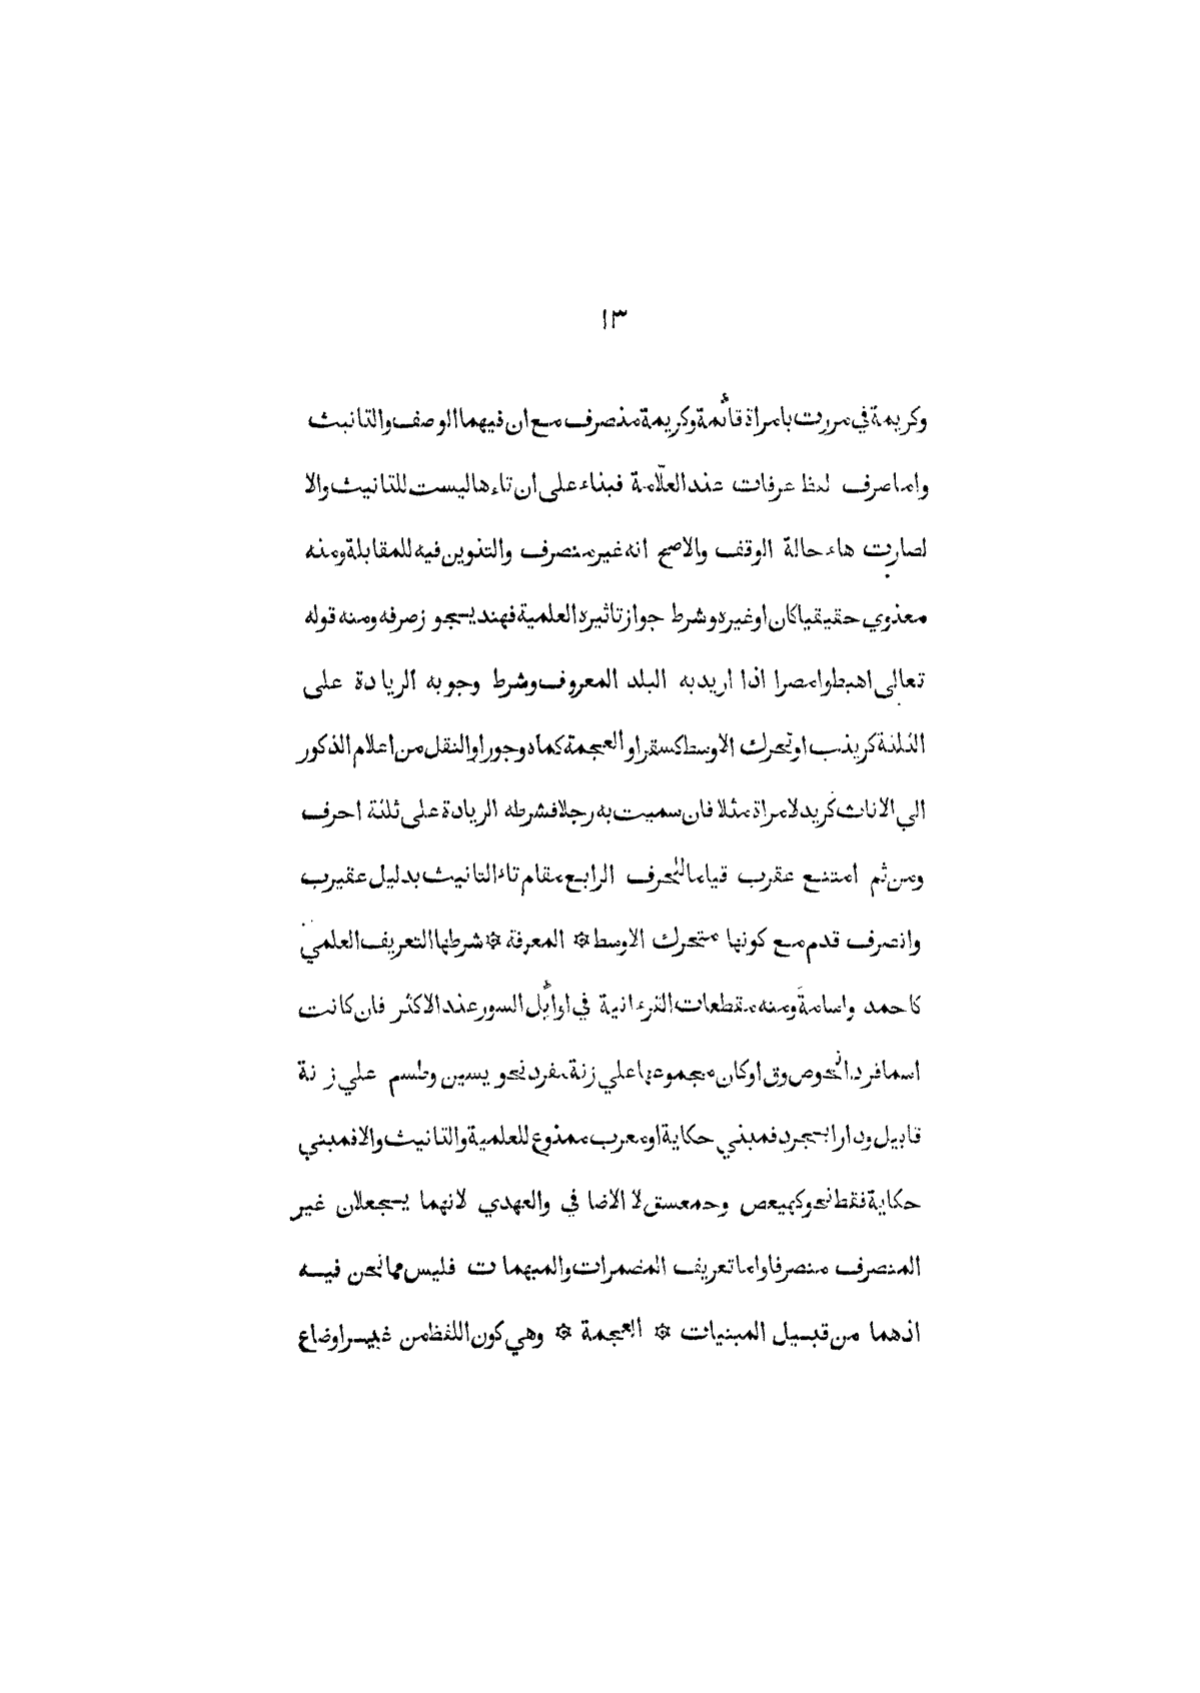 ١٣
وكريمة في مررت بامراة قائمة وكريمة منصرف مع ان فيهما الوصف والتانيث
واما صرف لفظ عرفات عند العلّامة فبناء على ان تاءها ليست للتانيث والا
لصارت هاء حالة الوقف والاصح انه غير منصرف والتنوين فيه للمقابلة ومنه
معنوي حقيقيا كان او غيره وشرط جواز تاثيره العلمية فهند يجوز صرفه ومنه قوله
تعالى اهبطوا مصرا اذا اريد به البلد المعروف وشرط وجوبه الزيادة على
الثلثة كزينب او تحرك الاوسط كسقر او العجمة كماه وجور او النقل من اعلام الذكور
الي الاناث كزيد لامراة مثلا فان سميت به رجلا فشرطه الزيادة على ثلثة احرف
ومن ثم امتنع عقرب قياما للحرف الرابع مقام تاء التانيث بدليل عقيرب
وانصرف قدم مع كونها متحرك الاوسط ۞ المعرفة ۞ شرطها التعريف العلمي
كاحمد واسامة ومنه مقطعات القرءانية في اوائل السور عند الاكثر فان كانت
اسما فردا نحو ص و ق او كان مجموعها على زنة مفرد نحو يسين وطسم علي زنة
قابيل ودارا بجرد فمبني حكاية او معرب ممنوع للعلمية والتانيث والا فمبني
حكاية فقط نحو كهيعص وحمعسق لا الاضافي والعهدي لانهما يجعلان غير
المنصرف منصرفا واما تعريف المضمرات والمبهمات فليس مما نحن فيه
اذ هما من قبيل المبنيات ۞ العجمة ۞ وهي كون اللفظ من غير اوضاع